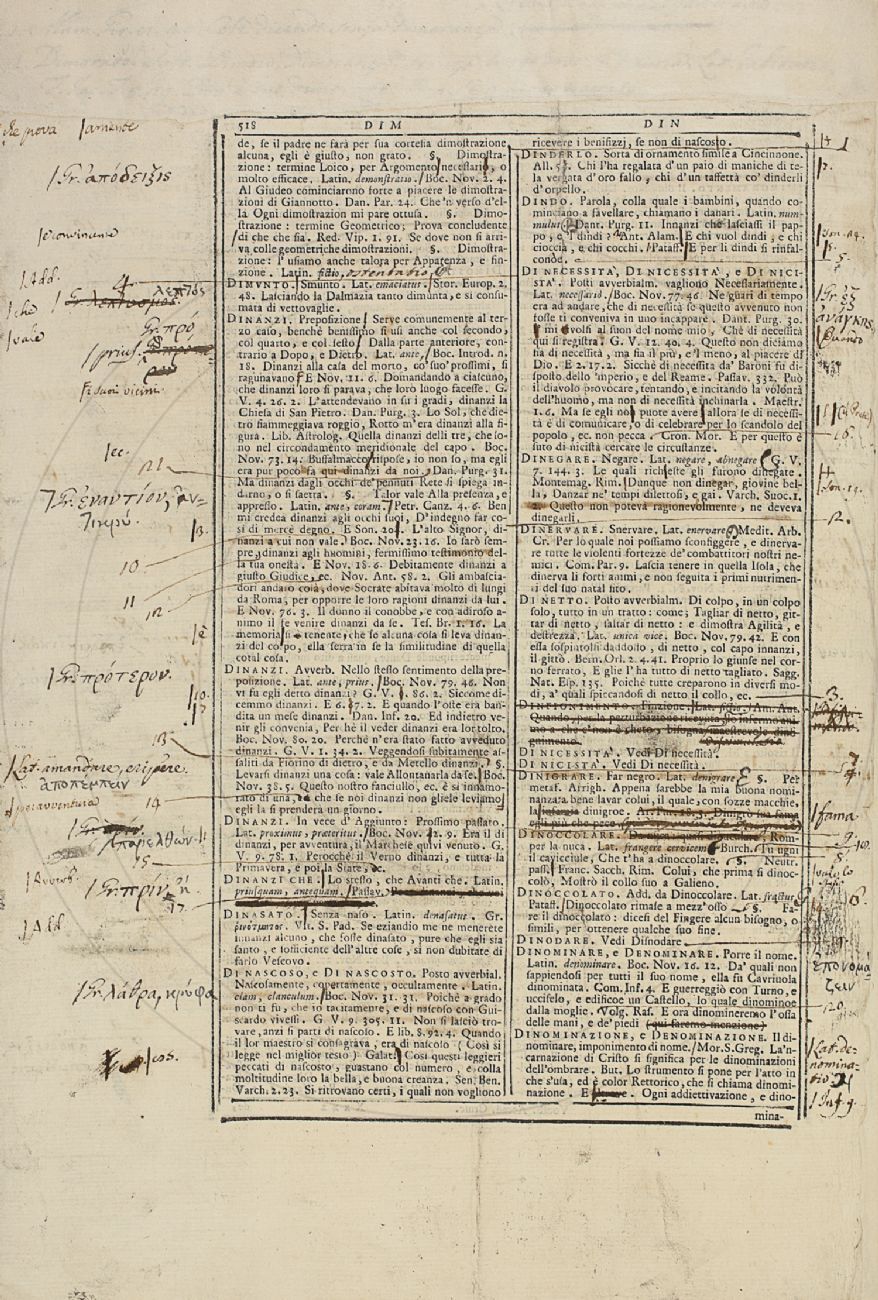 518 DIM
de, se il padre ne farà per sua cortesia dimostrazione
alcuna, egli è giusto, non grato. §. Dimostra-
zione: termine Loico, per Argomento necessario, o
molto efficace. Latin. demonstratio. Boc. Nov. 2. 4.
Al Giudeo cominciarono forte a piacere le dimostra-
zioni di Giannotto. Dan. Par. 24. Che 'n verso d'el-
la Ogni dimostrazion mi pare ottusa. §. Dimo-
strazione: termine Geometrico; Prova concludente
di che che sia. Red. Vip. 1. 91. Se dove non si arri-
va colle geometriche dimostrazioni. §. Dimostra-
zione: l'usiamo anche talora per Apparenza, e fin-
zione. Latin. fictio, ostentatio,
DIMUNTO. Smunto. Lat. emaciatus. Stor. Europ. 2.
48. Lasciando la Dalmazia tanto dimunta, e sì consu-
mata di vettovaglie.
DINANZI. Preposizione Serve comunemente al ter-
zo caso, benchè benissimo si usi anche col secondo,
col quarto, e col sesto Dalla parte anteriore, con-
trario a Dopo, e Dietro. Lat. ante, Boc. Introd. n.
18. Dinanzi alla casa del morto, co' suo' prossimi, si
ragunavano E Nov. 11. 6. Domandando a ciascuno,
che dinanzi loro si parava, che loro luogo facesse. G.
V. 4. 26. 2. L'attendevano in su i gradi, dinanzi la
Chiesa di San Pietro. Dan. Purg. 3. Lo Sol, che die-
tro fiammeggiava roggio, Rotto m'era dinanzi alla fi-
gura. Lib. Astrolog. Quella dinanzi delli tre, che so-
no nel circondamento meridionale del capo. Boc.
Nov. 73. 14. Buffalmacco rispose, io non so, ma egli
era pur poco fa qui dinanzi da noi. Dan. Purg. 31.
Ma dinanzi dagli occhi de' pennuti Rete si spiega in-
darno, o si saetta. §. Talor vale Alla presenza, e
appresso. Latin. ante, coram. Petr. Canz. 4. 6. Ben
mi credea dinanzi agli occhi suoi, D'indegno far co-
sì di mercè degno. E Son. 20. L'alto Signor, di-
nanzi a cui non vale. Boc. Nov. 23. 16. Io sarò sem-
pre, dinanzi agli huomini, fermissimo testimonio del-
la tua onestà. E Nov. 18. 6. Debitamente dinanzi a
giusto Giudice, ec. Nov. Ant. 58. 2. Gli ambascia-
dori andaro colà, dove Socrate abitava molto di lungi
da Roma, per opporre le loro ragioni dinanzi da lui.
E Nov. 76. 3. Il donno il conobbe, e con adiroso a-
nimo il fe venire dinanzi da se. Tes. Br. 1. 16. La
memoria è tenente, che se alcuna cosa si leva dinan-
zi del corpo, ella serra in se la similitudine di quella
cotal cosa.
DINANZI. Avverb. Nello stesso sentimento della pre-
posizione. Lat. ante, prius. Boc. Nov. 79. 46. Non
vi fu egli detto dinanzi? G. V. 86. 2. Siccome di-
cemmo dinanzi. E 6. 87. 2. E quando l'oste era ban-
dita un mese dinanzi. Dan. Inf. 20. Ed indietro ve-
nir gli convenia, Per chè il veder dinanzi era lor tolto.
Boc. Nov. 80. 20. Perchè n'era stato fatto avveduto
dinanzi. G. V. 1. 34. 2. Veggendosi subitamente as-
saliti da Fiorino di dietro, e da Metello dinanzi. §.
Levarsi dinanzi una cosa: vale Allontanarla da se. Boc.
Nov. 38. 5. Questo nostro fanciullo, ec. è sì innamo-
rato di una, che se noi dinanzi non gliele leviamo,
egli la si prenderà un giorno.
DINANZI. In vece d'Aggiunto: Prossimo passato.
Lat. proximus, præteritus. Boc. Nov. 12. 9. Era il dì
dinanzi, per avventura, il Marchese quivi venuto. G.
V. 9. 78. 1. Perocchè il Verno dinanzi, e tutta la
Primavera, e poi la State, ec.
DINANZI CHE. Lo stesso, che Avanti che. Latin.
priusquam, antequam. Passav.
DINASATO. Senza naso. Latin. denasatus. Gr.
Vit. S. Pad. Se eziandio me ne menerete
innanzi alcuno, che fosse dinasato, pure che egli sia
santo, e sofficiente dell'altre cose, si non dubitate di
farlo Vescovo.
DI NASCOSO, e DI NASCOSTO. Posto avverbial.
Nascosamente, copertamente, occultamente. Latin.
clam, clanculum. Boc. Nov. 31. 31. Poichè a grado
non ti fu, che io tacitamente, e di nascoso con Gui-
scardo vivessi. G. V. 9. 305. 11. Non si lasciò tro-
vare, anzi si partì di nascoso. E lib. 8. 92. 4. Quando
il lor maestro si consagrava, era di nascoso (Così si
legge nel miglior testo) Galat. Così questi leggieri
peccati di nascosto, guastano col numero, e colla
moltitudine loro la bella, e buona creanza. Sen. Ben.
Varch. 2. 23. Si ritrovano certi, i quali non vogliono
DIN
ricevere i benifizzj, se non di nascosto.
DINDERLO. Sorta di ornamento simile a Cincinnone.
All. 53. Chi l'ha regalata d'un paio di maniche di te-
la vergata d'oro falso, chi d'un taffettà co' dinderli
d'orpello.
DINDO. Parola, colla quale i bambini, quando co-
minciano a favellare, chiamano i danari. Latin. num-
mulus. Dant. Purg. 11. Innanzi che lasciassi il pap-
po, e 'l dindi? Ant. Alam. E chi vuol dindi, e chi
cioccia, e chi cocchi. Pataff. E per li dindi si rinfal-
conde.
DI NECESSITA', DI NICESSITA', e DI NICI-
STA'. Posti avverbialm. vagliono Necessariamente.
Lat. necessariò. Boc. Nov. 77. 46. Ne guari di tempo
era ad andare, che di necessità se questo avvenuto non
fosse ti conveniva in uno incappare. Dant. Purg. 30.
mi volsi al suon del nome mio, Che di necessità
qui si registra. G. V. 12. 40. 4. Questo non diciamo
sia di necessità, ma sia il più, e 'l meno, al piacere di
Dio. E 2. 17. 2. Sicchè di necessità da' Baroni fu di-
sposto dello 'mperio, e del Reame. Passav. 332. Può
il diavolo provocare, tentando, e incitando la volontà
dell'huomo, ma non di necessità inchinarla. Maestr.
1. 6. Ma se egli non puote avere allora se di necessi-
tà è di comunicare, o di celebrare per lo scandolo del
popolo, ec. non pecca. Cron. Mor. E per questo è
suto di nicistà cercare le circustanze.
DINEGARE. Negare. Lat. negare, abnegare G. V.
7. 144. 3. Le quali richieste gli furono dinegate.
Montemag. Rim. Dunque non dinegar, giovine bel-
la, Danzar ne' tempi dilettosi, e gai. Varch. Suoc. 1.
2. Questo non poteva ragionevolmente, ne doveva
dinegarli.
DINERVARE. Snervare. Lat. enervare. Medit. Arb.
Cr. Per lo quale noi possiamo sconfiggere, e dinerva-
re tutte le violenti fortezze de' combattitori nostri ne-
mici. Com. Par. 9. Lascia tenere in quella Isola, che
dinerva li forti animi, e non seguita i primi nutrimen-
ti del suo natal sito.
DI NETTO. Posto avverbialm. Di colpo, in un colpo
solo, tutto in un tratto: come; Tagliar di netto, git-
tar di netto, saltar di netto: e dimostra Agilità, e
destrezza. Lat. unica vice. Boc. Nov. 79. 42. E con
essa sospintolsi daddosso, di netto, col capo innanzi,
il gittò. Bern. Orl. 2. 4. 41. Proprio lo giunse nel cor-
no ferrato, E glie l'ha tutto di netto tagliato. Sagg.
Nat. Esp. 135. Poichè tutte creparono in diversi mo-
di, a' quali spiccandosi di netto il collo, ec.
DI NICESSITA'. Vedi Di necessità.
DI NICISTA. Vedi Di necessità.
DINIGRARE. Far negro. Lat. denigrare §. Per
metaf. Arrigh. Appena sarebbe la mia buona nomi-
nanza bene lavar colui, il quale, con sozze macchie,
DINOCCOLARE. Rom-
per la nuca. Lat. frangere cervicem Burch. Tu ugni
il cavicciule, Che t'ha a dinoccolare. §. Neutr.
pass. Franc. Sacch. Rim. Colui, che prima si dinoc-
colò, Mostrò il collo suo a Galieno.
DINOCCOLATO. Add. da Dinoccolare. Lat. fractus
Pataff. Dinoccolato rimase a mezz'osso §. Fa-
re il dinoccolato: dicesi del Fingere alcun bisogno, o
simili, per ottenere qualche suo fine.
DINODARE. Vedi Disnodare
DINOMINARE, e DENOMINARE. Porre il nome.
Latin. denominare. Boc. Nov. 16. 12. Da' quali non
sappiendosi per tutti il suo nome, ella fu Cavriuola
dinominata. Com. Inf. 4. E guerreggiò con Turno, e
uccisselo, e edificoe un Castello, lo quale dinominoe
dalla moglie. Volg. Ras. E ora dinomineremo l'ossa
delle mani, e de' piedi (qui faremo menzione)
DINOMINAZIONE, e DENOMINAZIONE. Il di-
nominare, imponimento di nome. Mor. S. Greg. La 'n-
carnazione di Cristo si significa per le dinominazioni
dell'ombrare. But. Lo strumento si pone per l'atto in
che s'usa, ed è color Rettorico, che si chiama dinomi-
nazione. E Ogni addiettivazione, e dino-
mina-
Gr. ἀπόδειξις
Add.
che
vale
λεπτός
Gr. πρό
prius
ec.
Gr. ἐναντίον, ἀν-
10
11
12
è
Gr. πρότερον.
Lat. amandare, eripere.
ἀποπέμπειν
peravventura
14
15
Avverb.
Gr. πρίν, ἤ
17
Add
Gr. λάθρα, κρύφα
cos.
Gr. ἐξ
ἀνάγκης
12.
3.
fama
ἐπονομά
ζειν
20.
Lat. de-
nomina-
tio
Inf. 9.